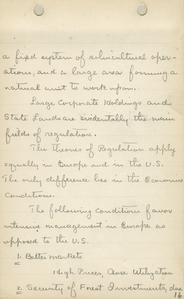 a fixed system of silvicultural oper-
ations, and a large area forming a
natural unit to work upon.
Large Corporate Holdings and
State Lands are evidentally the main
fields of regulation.
The theories of Regulation apply
equally in Europe and in the U.S.
The only difference lies in the Economic
Conditions.
The following conditions favor
intensive management in Europe as
opposed to the U.S.
1. Better markets
High Prices Close Utilization
2. Security of Forest Investments, due